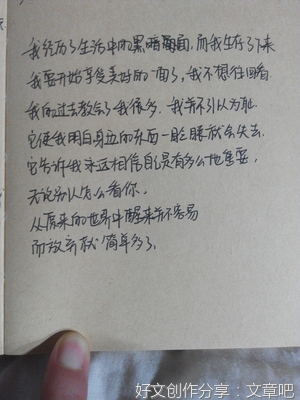 我经历了生活中的黑暗面，而我生存了下来
我要开始享受美好的一面了，我不想往回看
我的过去教会了我很多．我并不引以为耻．
它使我明白身边的东西一眨眼就会失去．
它告诉我永远相信自己是有多么地重要，
无论别人怎么看你．
从原来的世界中醒来并不容易
而放弃就简单多了．
好文创作分享：文章吧